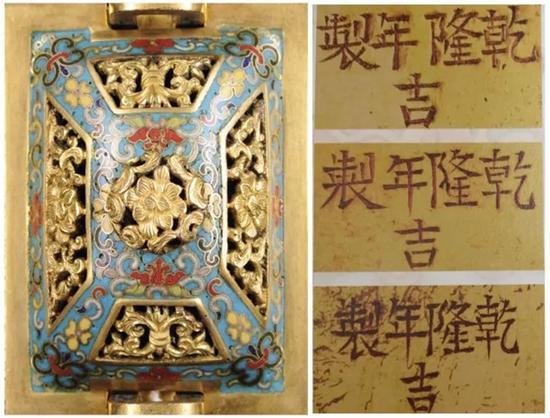 乾隆年製
吉
乾隆年製
吉
乾隆年製
吉